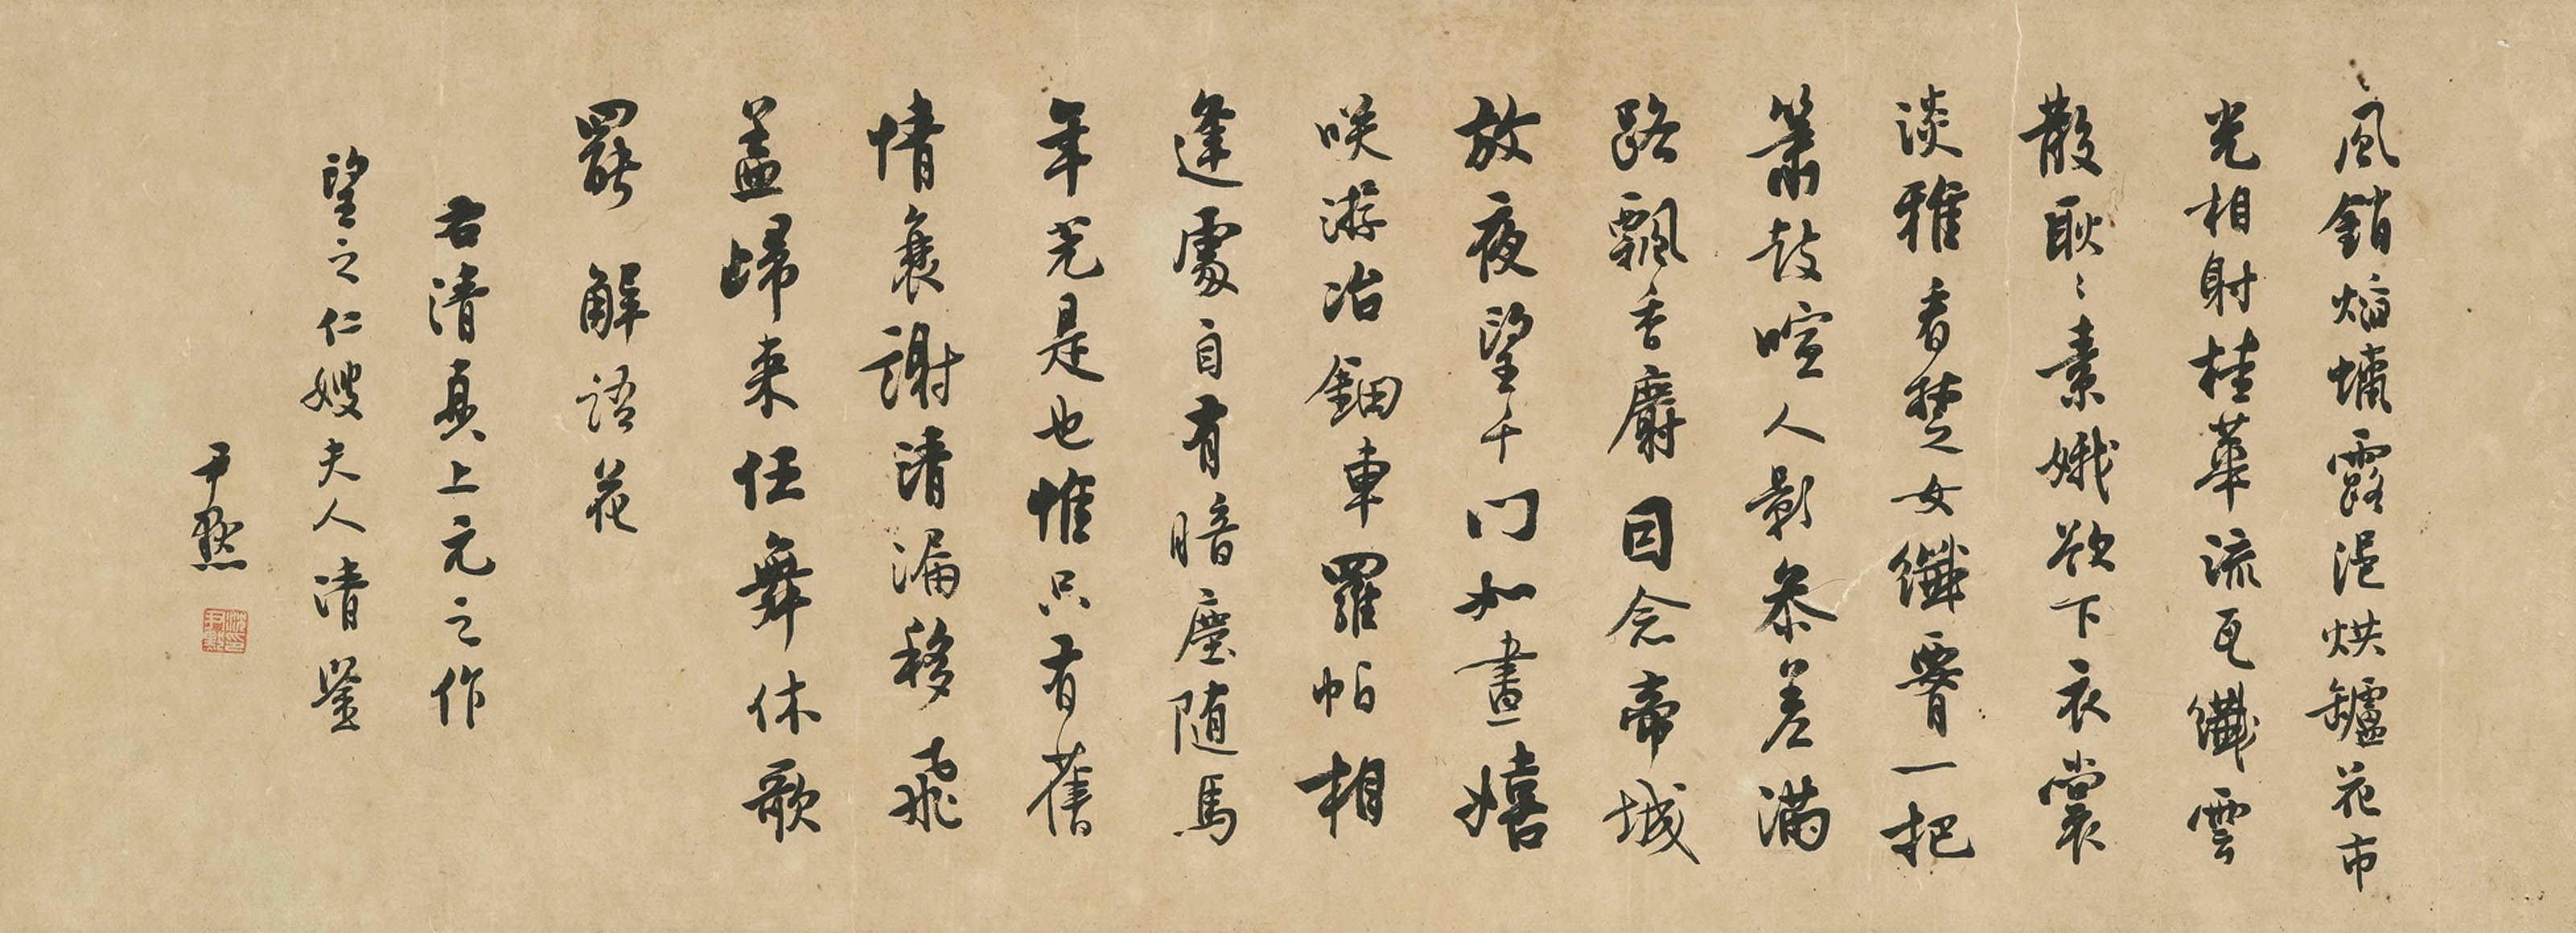 風銷焰蠟露浥烘罏花市
光相射桂華流瓦纖雲
散耿〻素娥欲下衣裳
淡雅看楚女纖霄一把
簫鼓喧人影参差滿
路飄香麝因念帝城
放夜望千門如晝嬉
咲游冶鈿車羅帕相
逢處自有暗塵随馬
年光是也惟只有舊
情衰謝清漏移飛
盖歸来任舞休歌
罷 解語花
右清真上元之作
望之仁嫂夫人清鑒
尹默